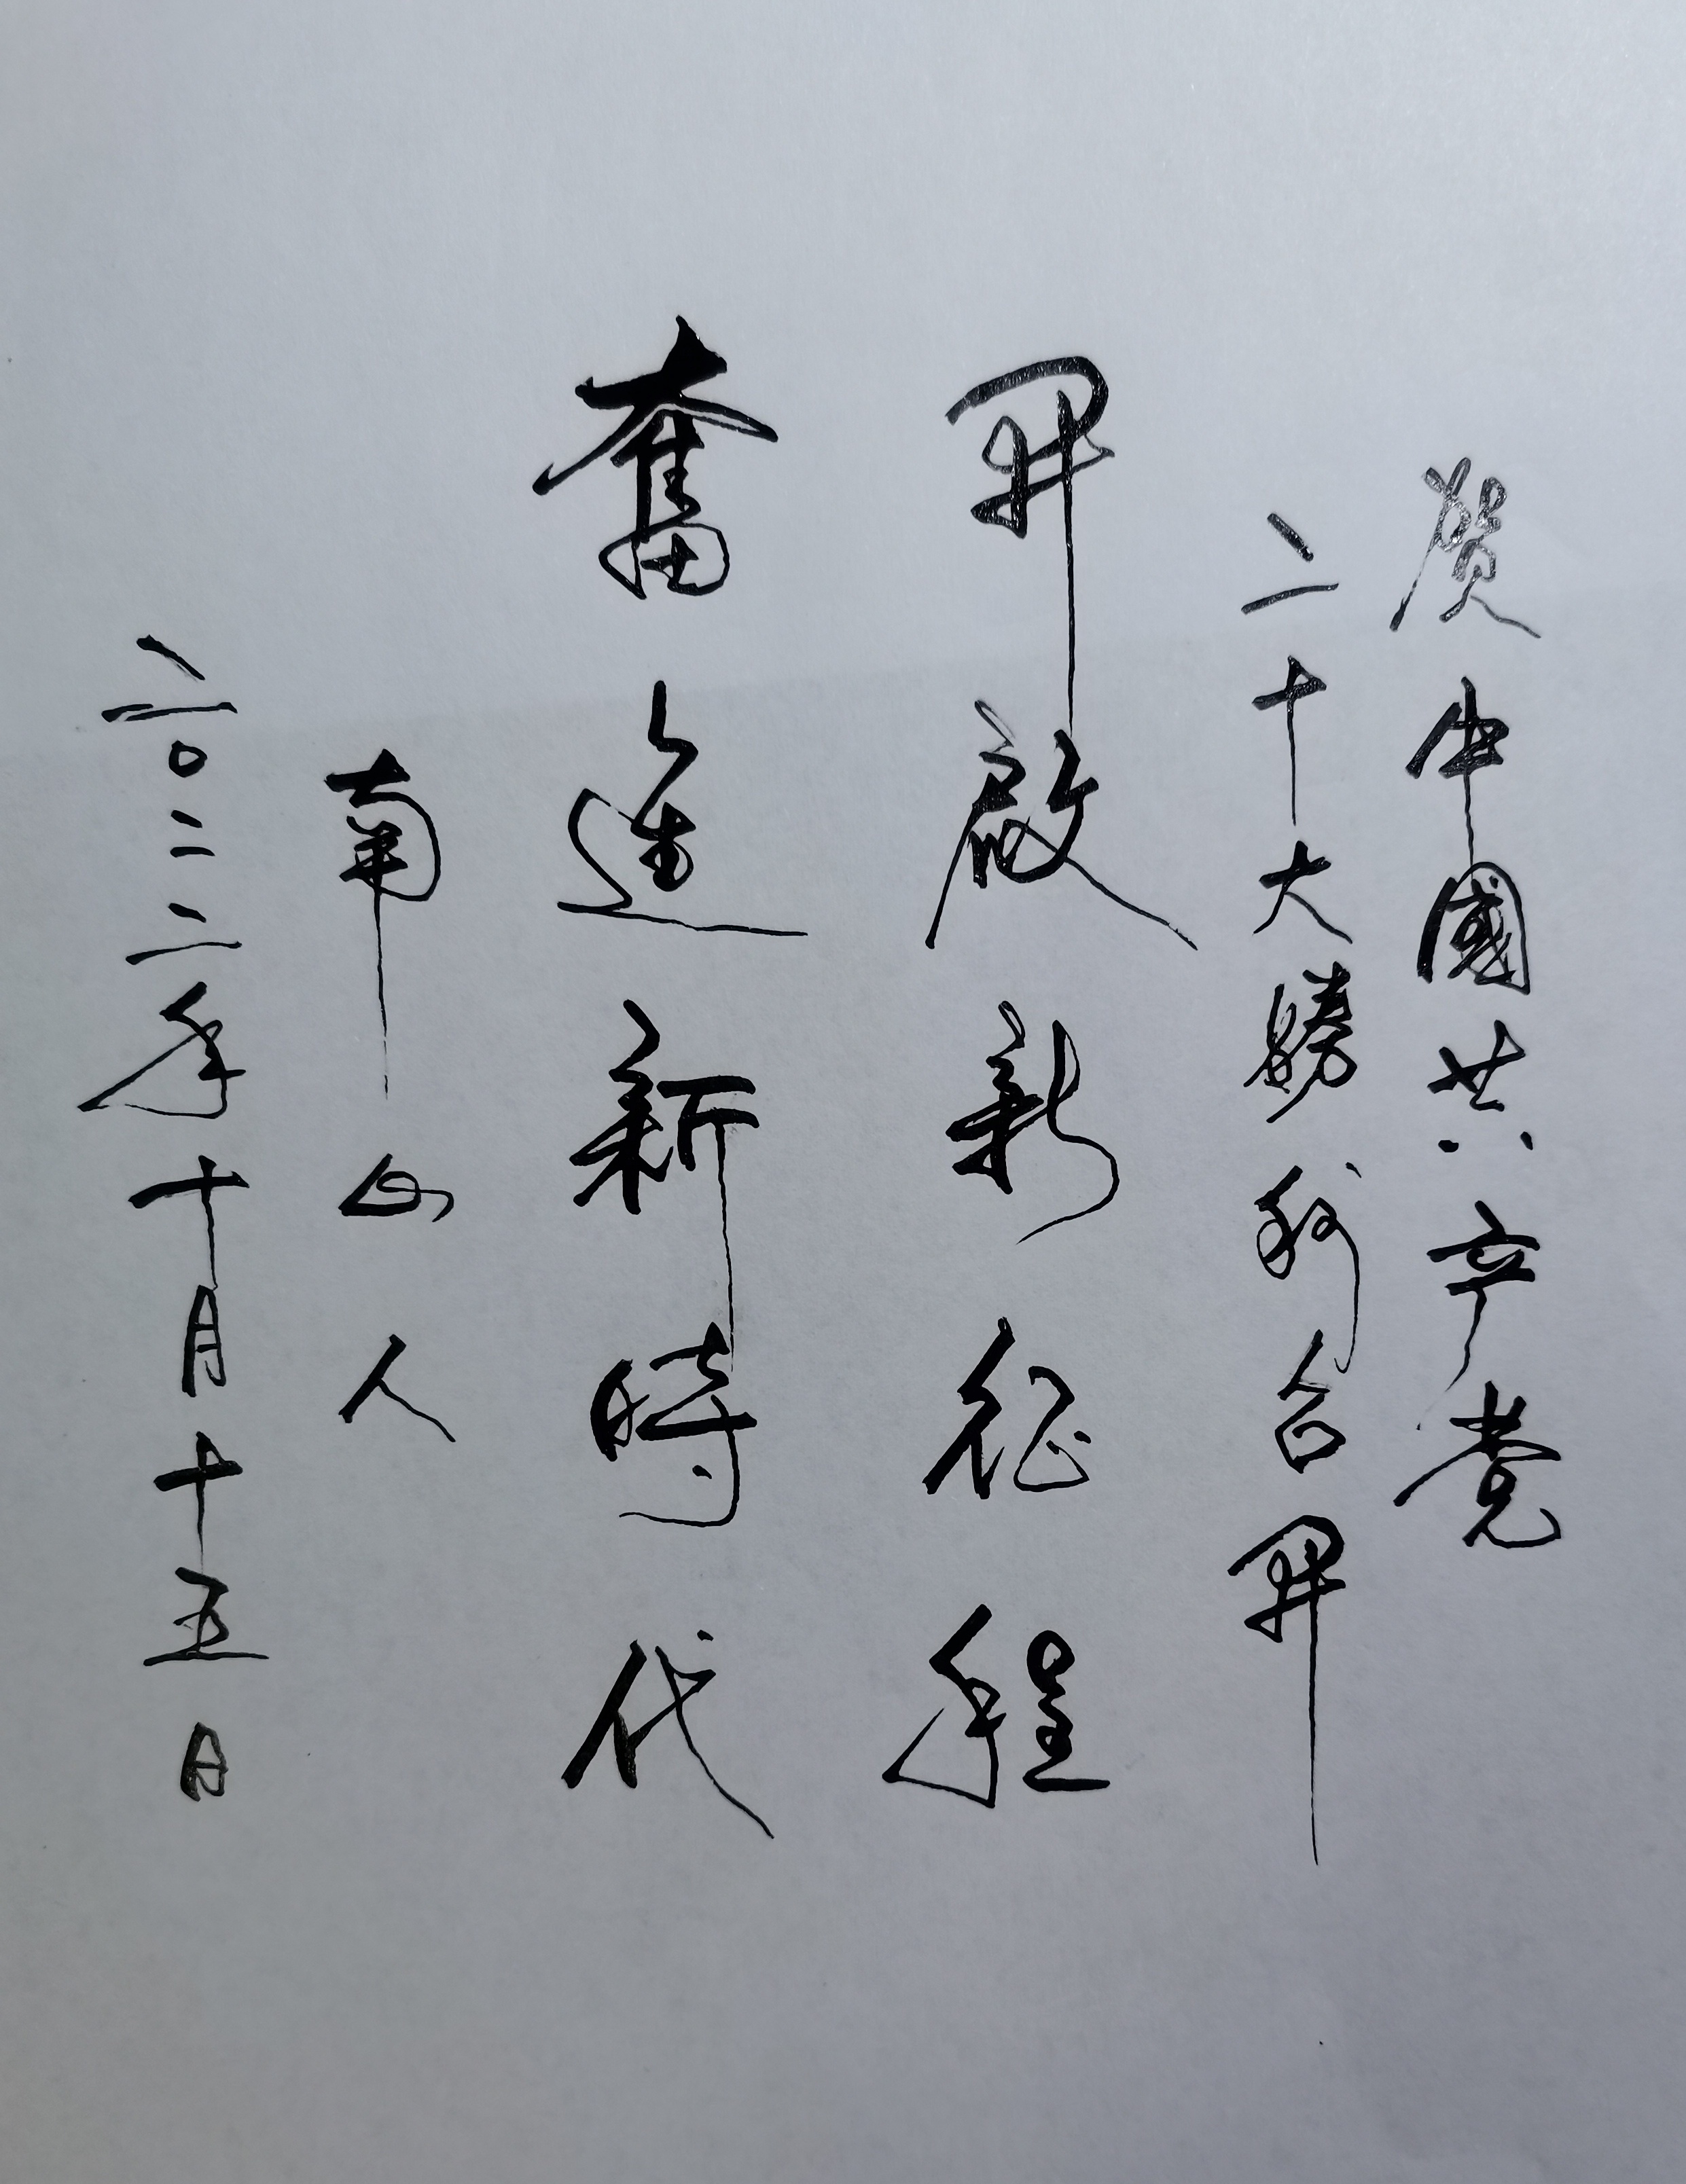 贺中國共产党
二十大勝利召開
開啟新征程
奮進新時代
南山人
二〇二二年十月十五日